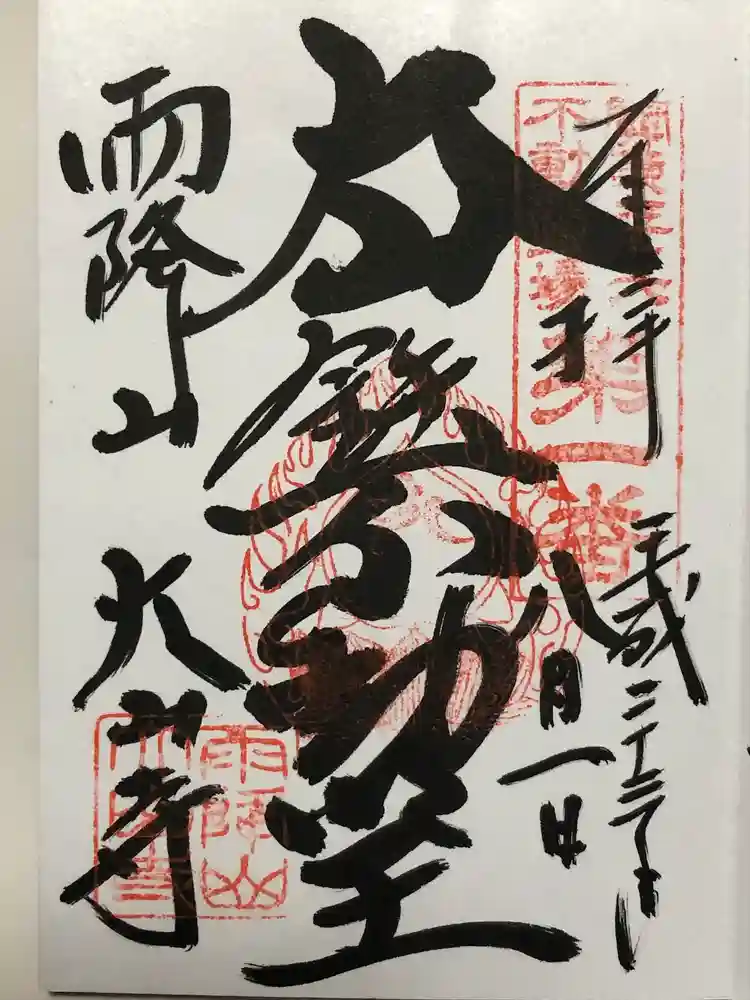 奉拝
平成二十三年
八月一日
関東三十六
不動霊場
第一番
大鉄不動
堂
雨降山
大山寺
雨降山
大山寺